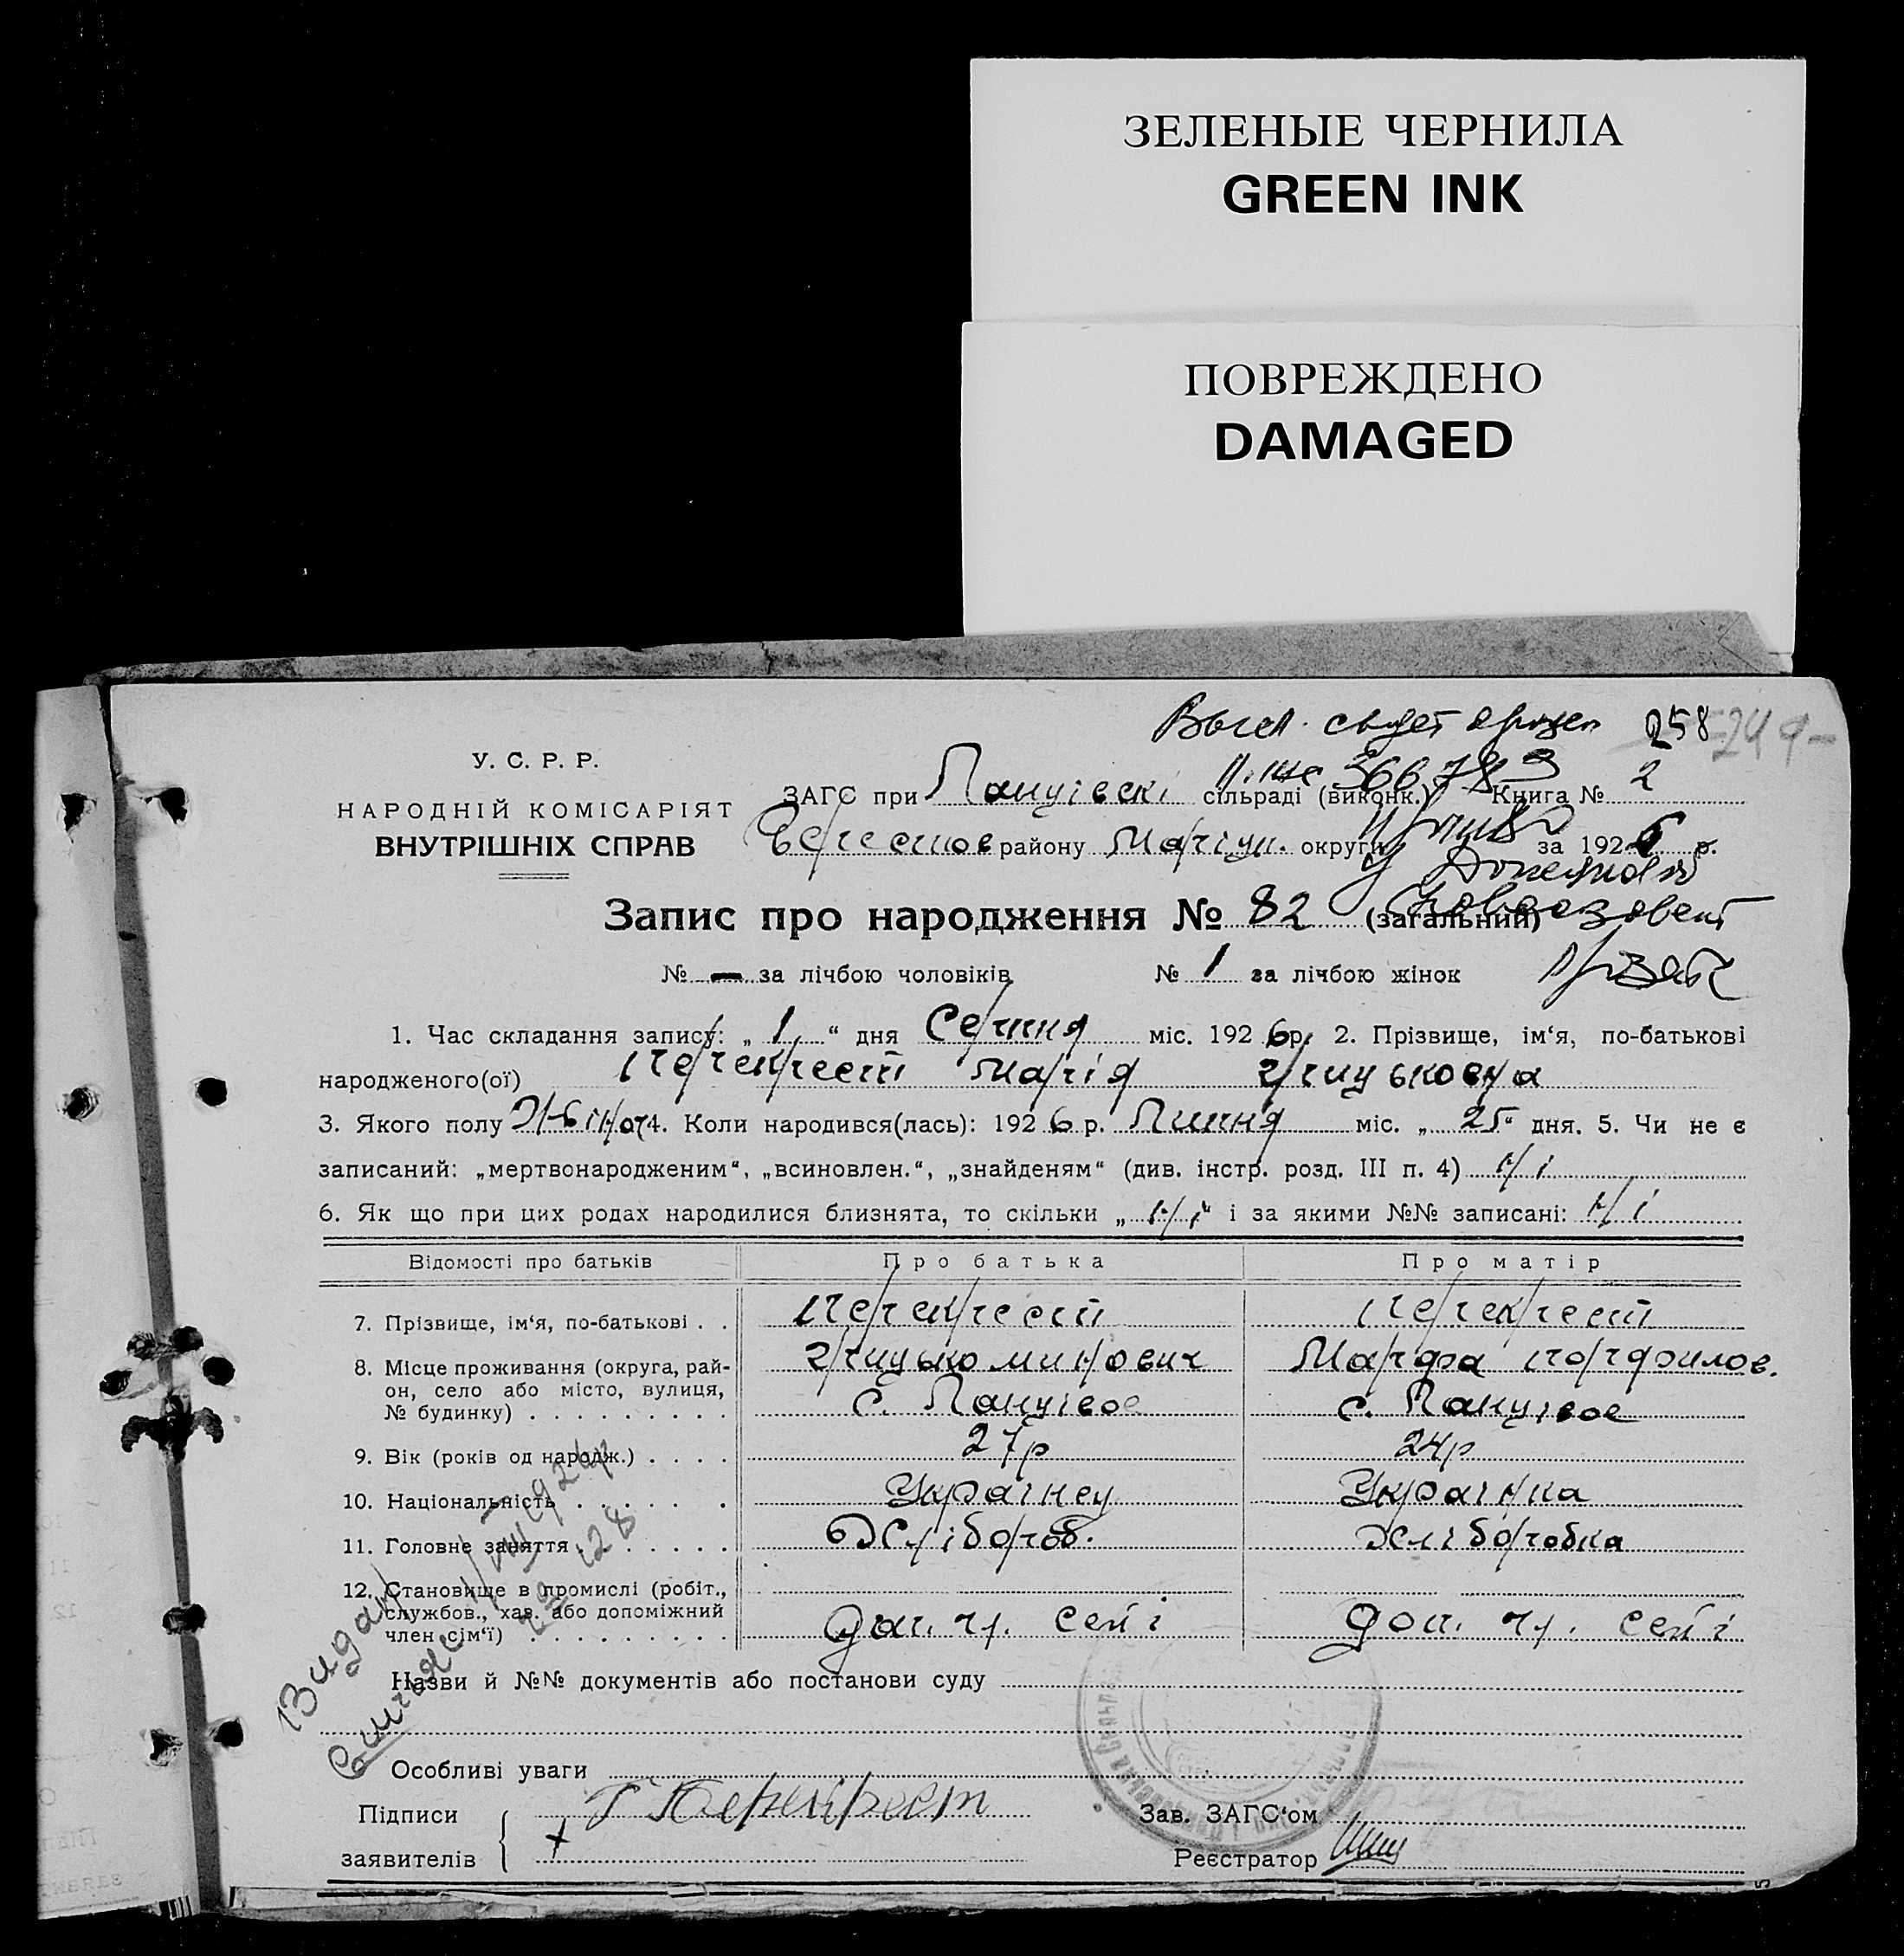 ЗЕЛЕНЫЕ ЧЕРНИЛА
GREEN INK
ПОВРЕЖДЕНО
DAMAGED
258 249
У. С. Р. Р.
НАРОДНІЙ КОМІСАРІЯТ
ВНУТРІШНІХ СПРАВ
ЗАГС при сільраді (виконк.) Книга № 2
району Маріуп. округи за 1926 р.
Запис про народження № 82 (загальний)
№ — за лічбою чоловіків № 1 за лічбою жінок
1. Час складання запису: „ 1 “ дня Серпня міс. 1926 р. 2. Прізвище, ім‘я, по-батькові
народженого(ої) Перекрест Марія Грицьковна
3. Якого полу Жіноч 4. Коли народився(лась): 1926 р. Липня міс. „ 25 “ дня. 5. Чи не є
записаний: „мертвонародженим“, „всиновлен.“, „знайденям“ (див. інстр. розд. III п. 4) Ні
6. Як що при цих родах народилися близнята, то скільки „ Ні “ і за якими №№ записані: Ні
Відомості про батьків Про батька Про матір
7. Прізвище, ім‘я, по-батькові . . Перекрест Перекрест
Грицько Минович Марфа Порфилов.
8. Місце проживання (округа, рай-
он, село або місто, вулиця,
№ будинку) . . . . . . . . . с.  с.
9. Вік (років од народж.) . . . . 27р 24р
10. Національність . . . . . . . Українец Українка
11. Головне заняття . . . . . . . Хлібороб. Хліборобка
12. Становище в промислі (робіт.,
службов., хаз. або допоміжний
член сім‘ї) . . . . . . . . . доп. чл. семі доп. чл. семі
Видан
Назви й №№ документів або постанови суду
Особливі уваги
Підписи Г Перекрест Зав. ЗАГС‘ом
заявителів + Реєстратор